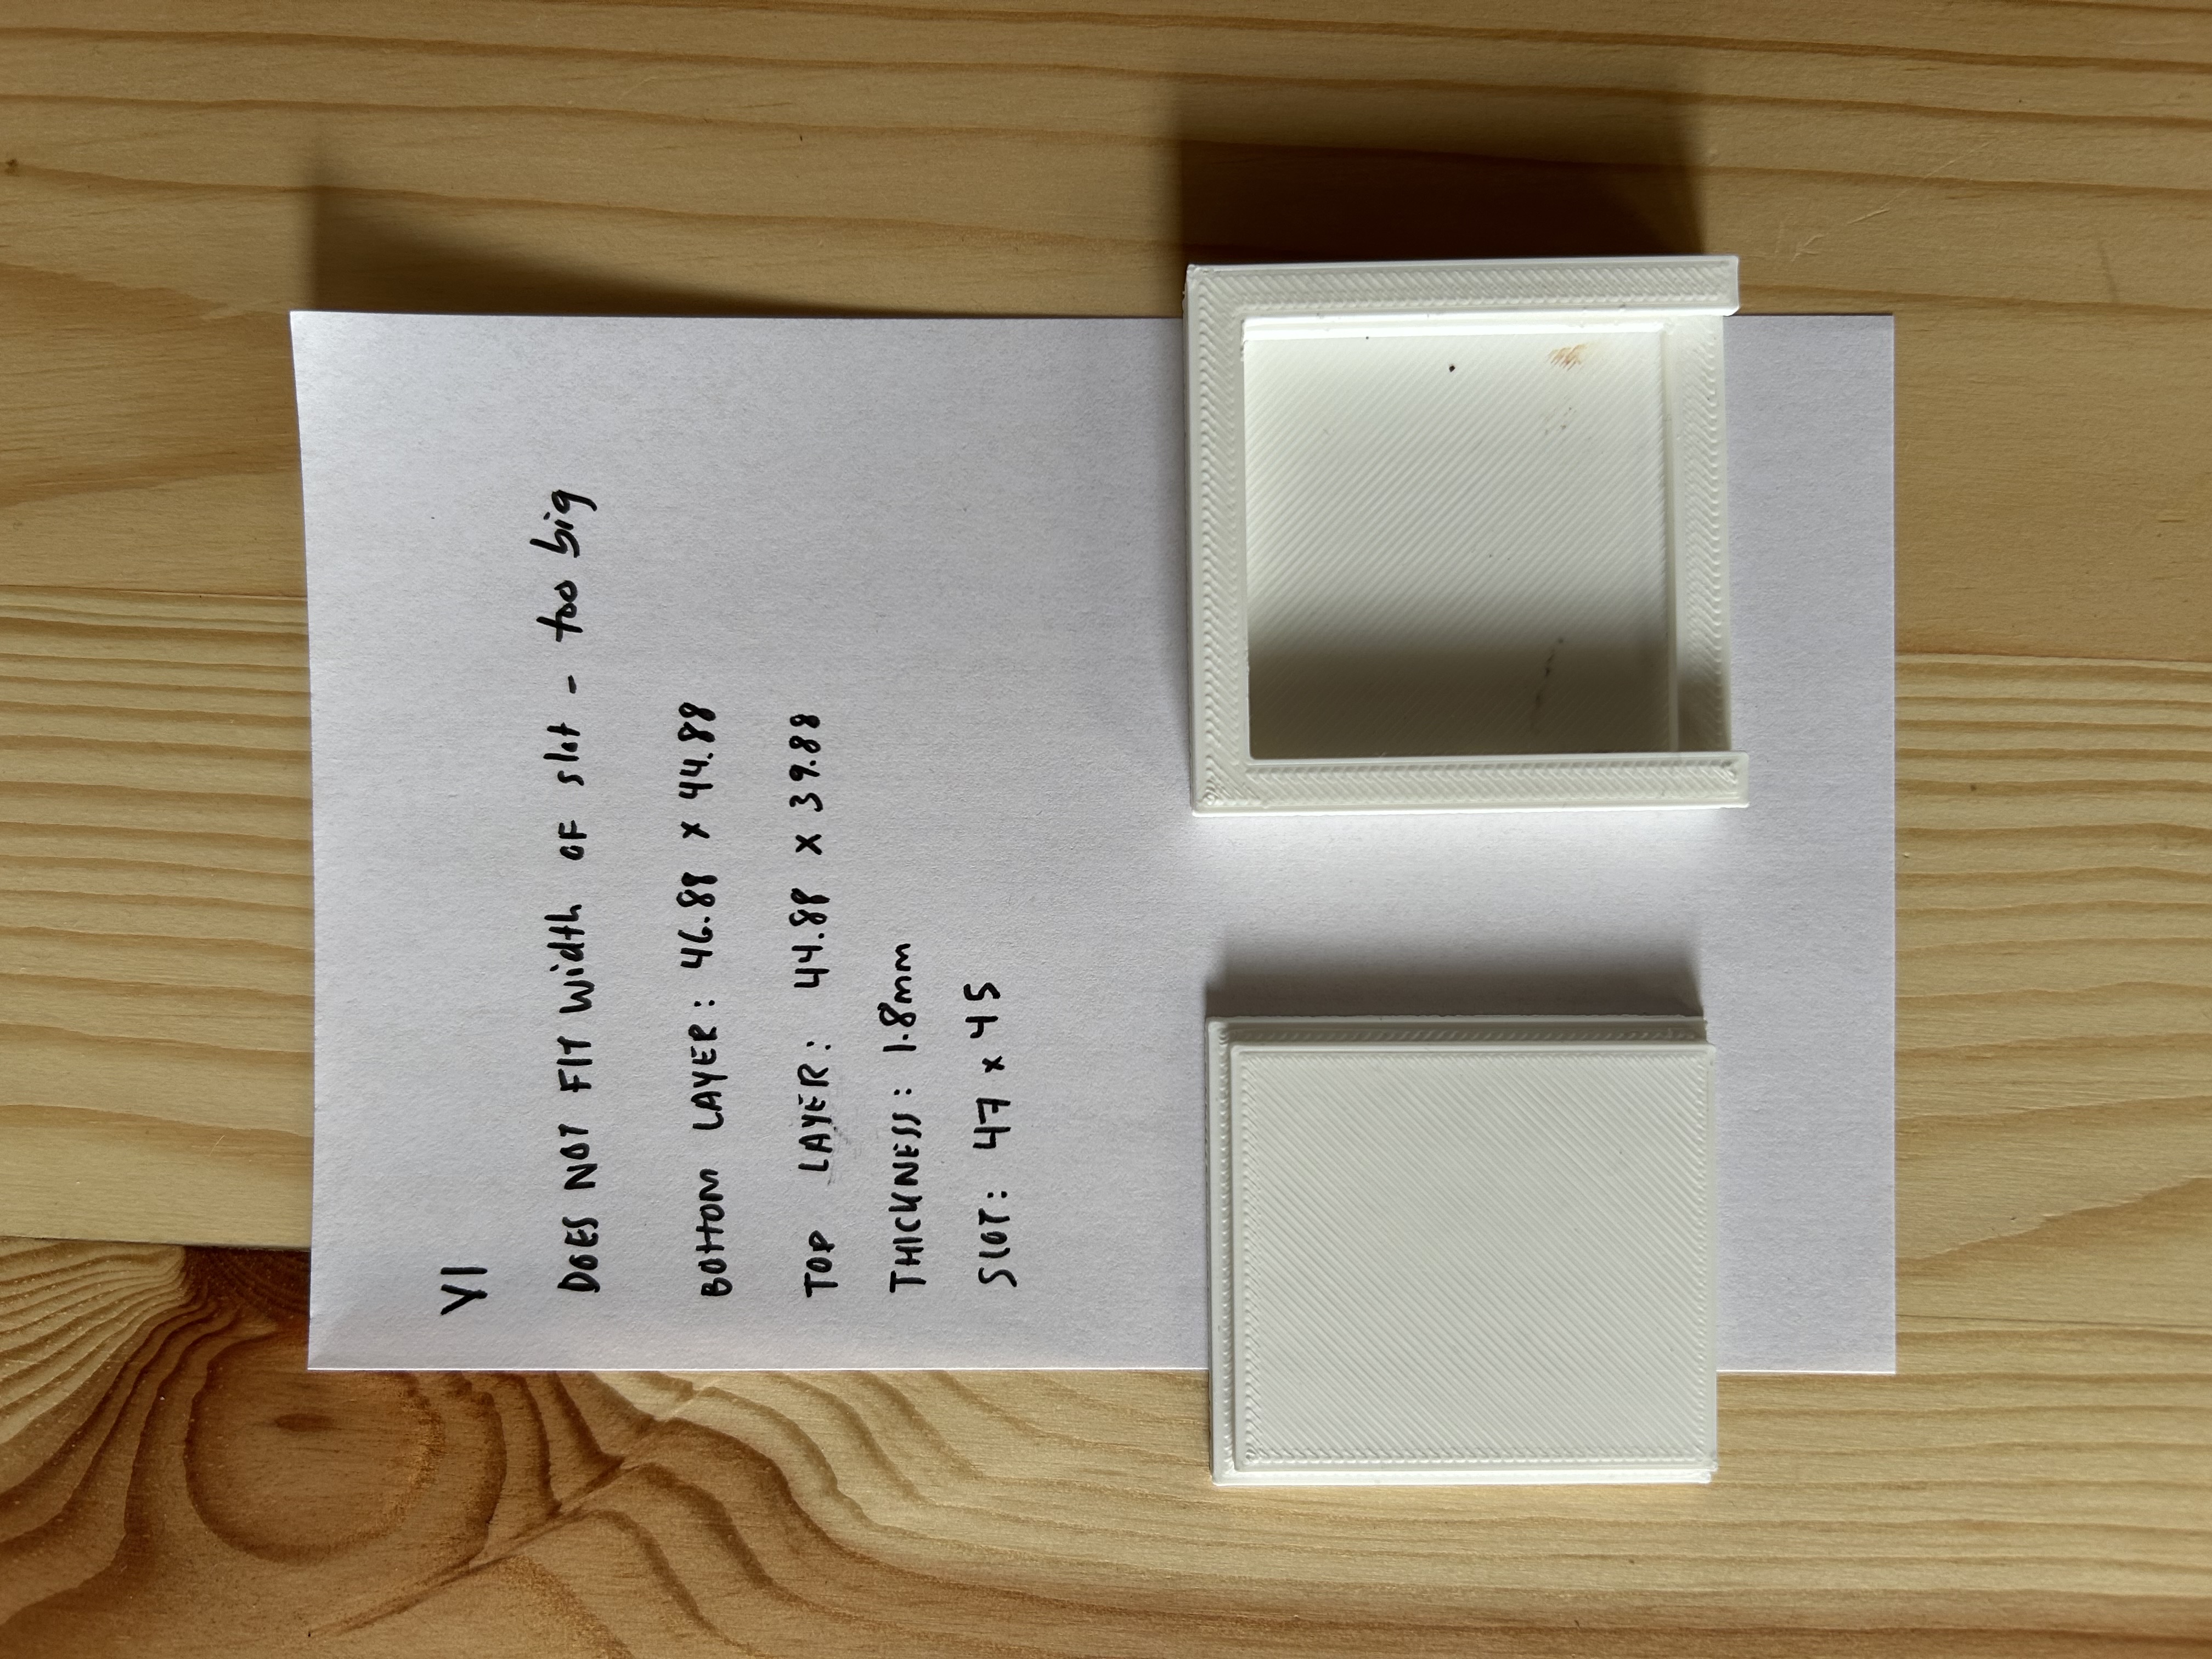 V1
DOES NOT FIT width OF slot - too big
BOTTOM LAYER: 46.88 x 44.88
TOP LAYER: 44.88 x 39.88
THICKNESS: 1.8mm
SLOT: 47 x 45